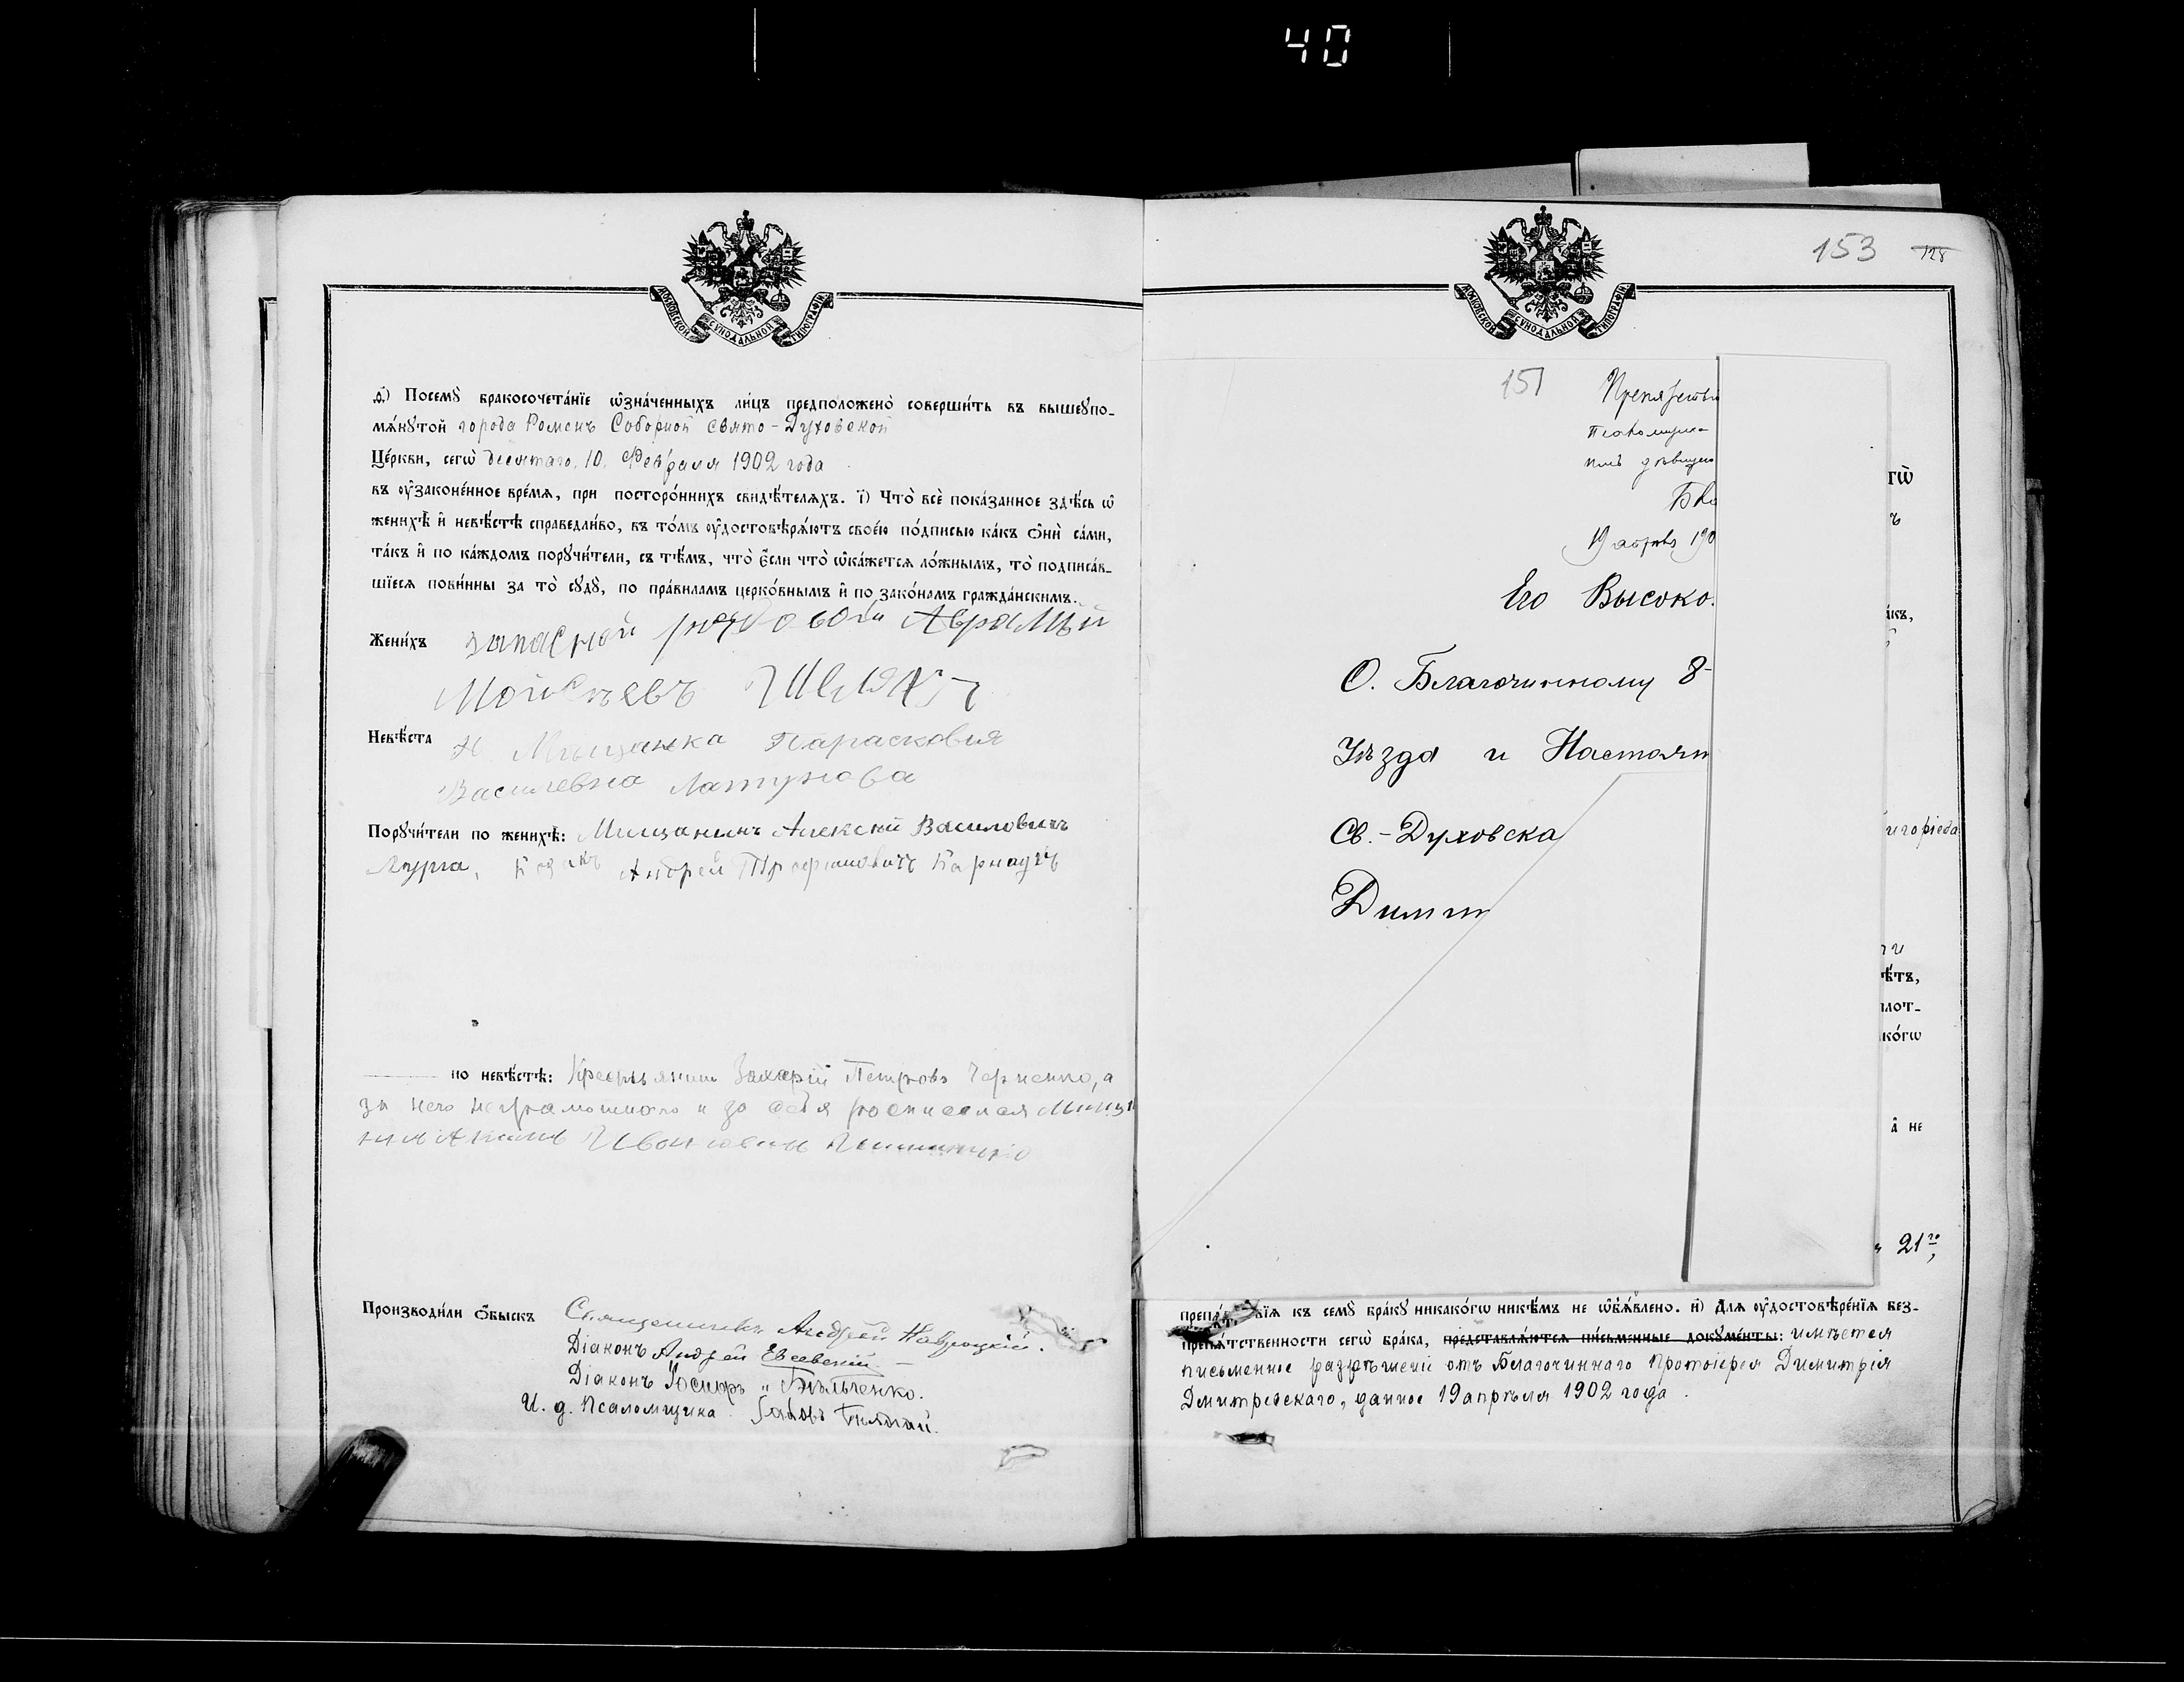 40
МОСКОВСКОЙ СѴНОДАЛЬНОЙ ТИПОГРАФІИ
ѳ҃) Посемꙋ̀ бракосочета́нїе ѡ҆зна́ченныхъ ли́цъ предположено̀ соверши́ть въ вышеꙋпо-
мѧ́нꙋтой города Роменъ Соборной Свято-Духовской
Це́ркви, сегѡ̀ десятаго, 10, Февраля 1902 года
въ ᲂу҆законе́нное вре́мѧ, при посторо́ннихъ свидѣ́телѧхъ. і҃) Что̀ всѐ пока́занное здѣ́сь ѡ҆
женихѣ̀ и҆ невѣ́стѣ справедли́во, въ то́мъ ᲂу҆достовѣрѧ́ютъ свое́ю по́дписью ка́къ ѻ҆нѝ са́ми,
та́къ и҆ по ка́ждомъ порꙋчи́тели, съ тѣ́мъ, что̀ є҆́сли что̀ ѡ҆ка́жетсѧ ло́жнымъ, то̀ подписа́в-
шїесѧ пови́нны за то̀ сꙋдꙋ̀, по пра́виламъ церко́внымъ и҆ по зако́намъ гражда́нскимъ.
Жени́хъ запасной рядовой Аврамій
Мойсѣевъ
Невѣ́ста Мѣщанка Парасковія
Василевна Латунова
Порꙋчи́тели по женихѣ̀: Мищанинъ Алексѣй Василовичъ
Козакъ Андрей Трофимовичъ Карнаухъ
по невѣ́стѣ: Крестьянин Захарій Петровъ Черненко, а
за него неграмотного и за себя росписался Мищ
Производи́ли ѻ҆́быскъ Священникъ Андрей Навроцкій.
Діаконъ Андрей Евсевскій
Діаконъ Іосифъ Бѣльченко.
И. д. Псаломщика
153 128
МОСКОВСКОЙ СѴНОДАЛЬНОЙ ТИПОГРАФІИ
151 Препятстви
19 апрѣл 190
Его Высоко.
О. Благочинному 8-
Уѣзда и Настоят
Св.-Духовска
Димит
гѡ̀
ъ
а́къ,
и
ѣ́тъ,
плот-
ко́гѡ
а҆ не
21го,
препѧ́тствїѧ къ семꙋ̀ бра́кꙋ никако́гѡ никѣ́мъ не ѡ҆б̾ѧ́влено. и҃) Длѧ ᲂу҆достовѣре́нїѧ без-
препѧ́тственности сегѡ̀ бра́ка, представлѧ́ютсѧ пи́сьменные докꙋме́нты: имѣется
письменное разрѣшеніе отъ Благочиннаго Протоіерея Димитрія
Дмитревскаго, данное 19 апрѣля 1902 года.